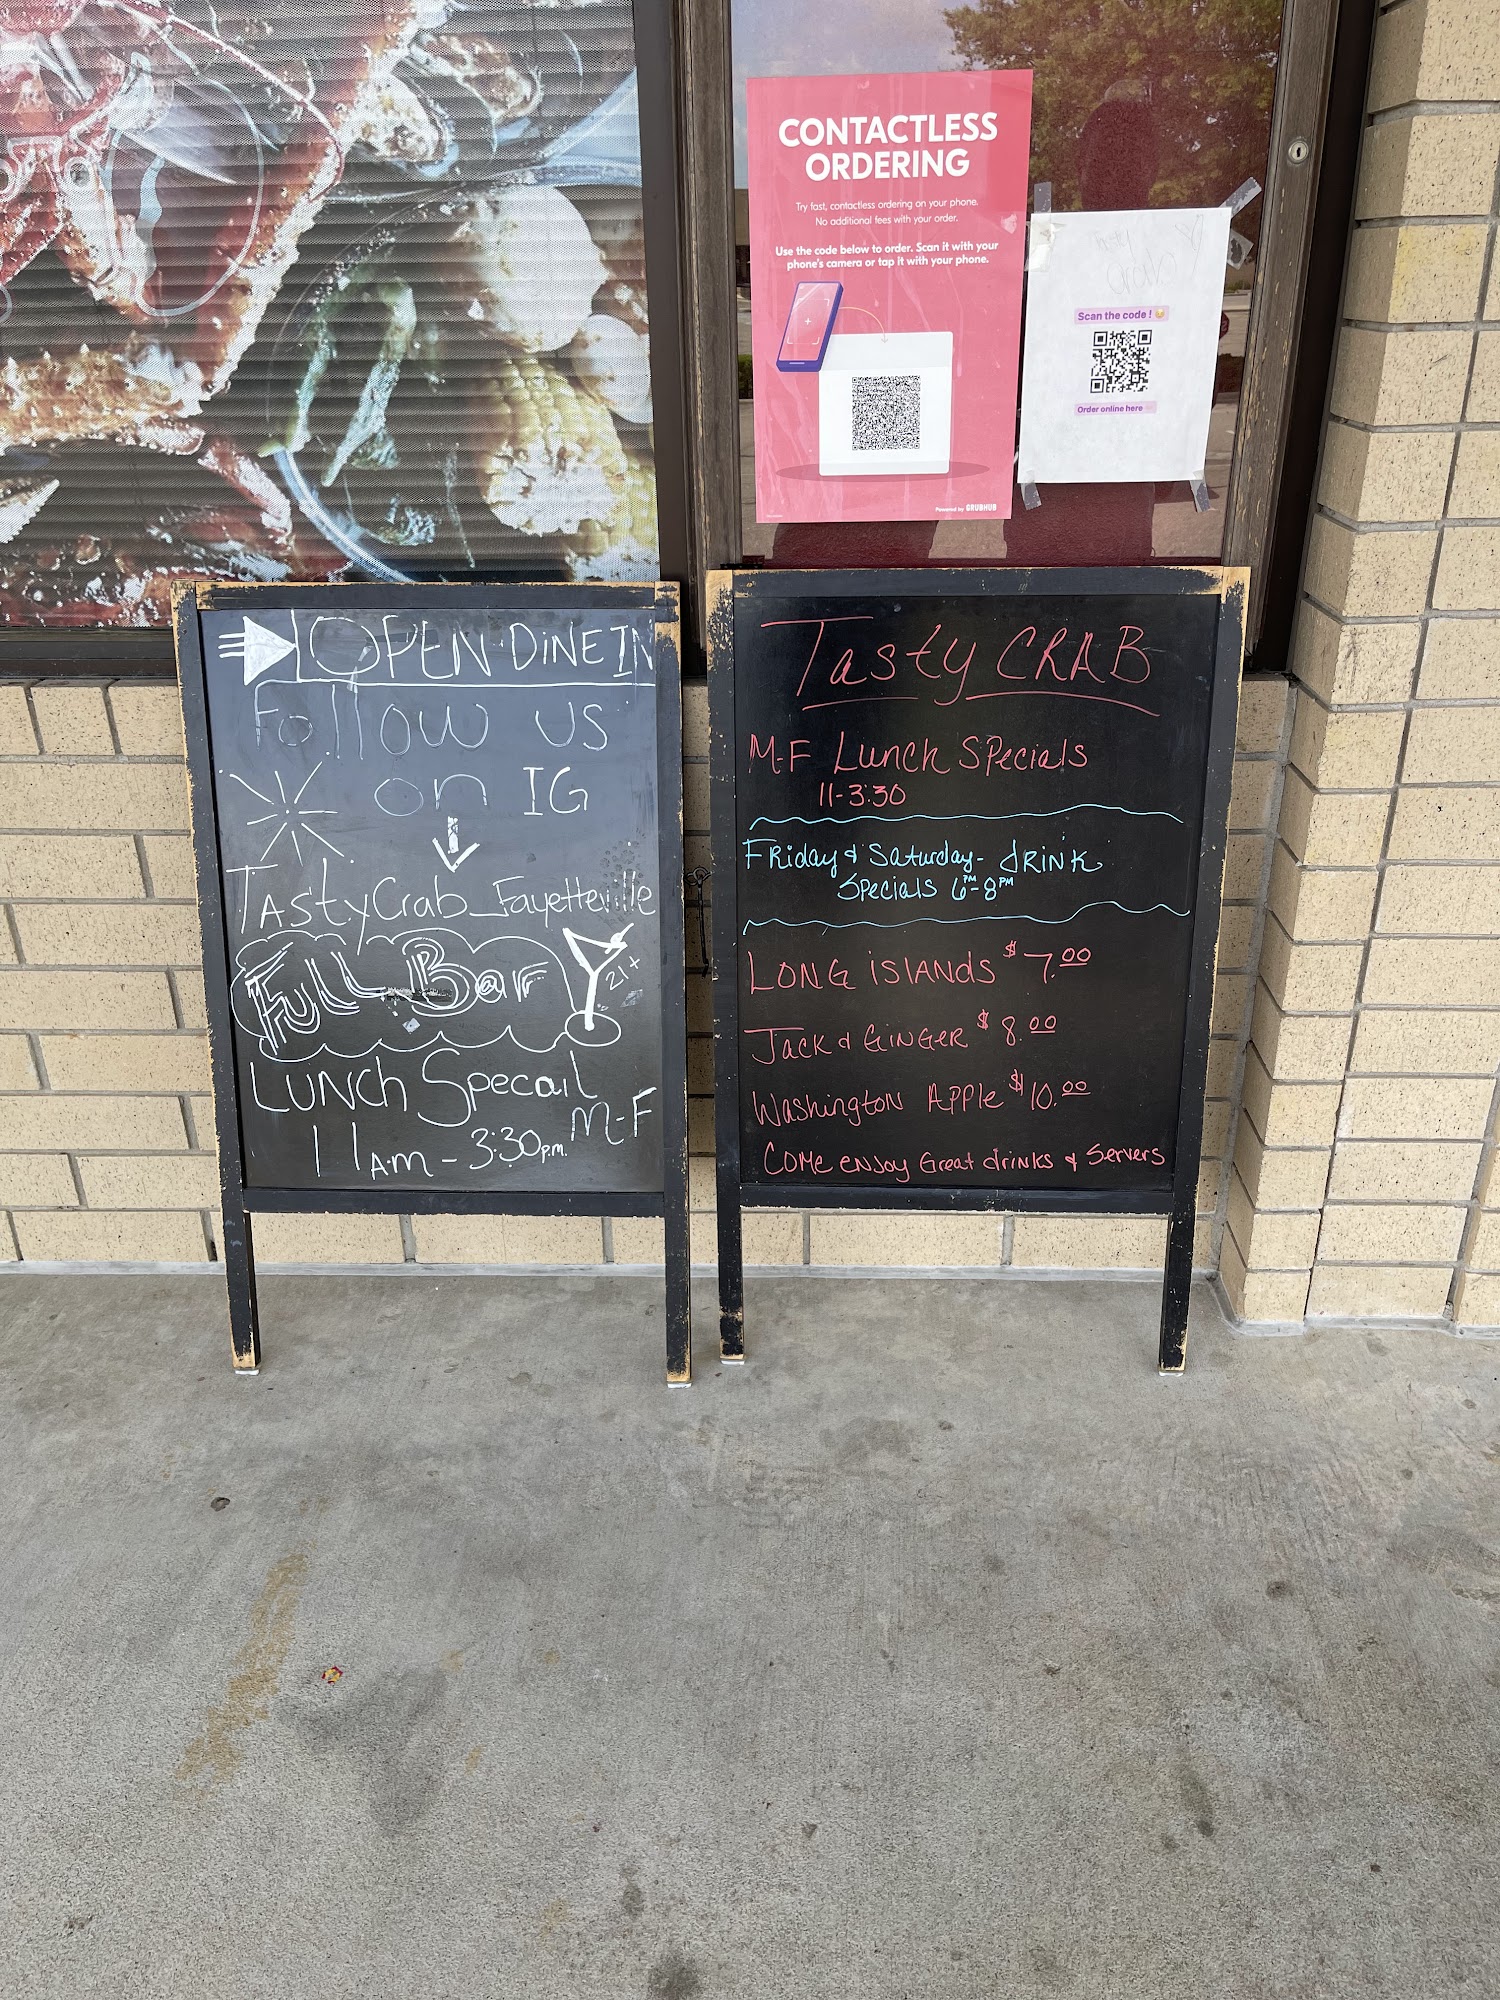 CONTACTLESS
ORDERING
Try fast, contactless ordering on your phone.
No additional fees with your order.
Use the code below to order. Scan it with your
phone's camera or tap it with your phone.
Powered by GRUBHUB
Tasty
Crab
Scan the code!
Order online here
OPEN DiNE IN
Follow us
on IG
TAstyCrab_Fayetteville
FULL Bar
21+
LUNCh Specail
M-F
11 A.m - 3:30p.m.
Tasty CRAB
M-F Lunch Specials
11-3:30
FRiday & Saturday- dRiNK
Specials 6PM-8PM
LONG iSlANDS $7.00
JACK & GiNGER $8.00
WashingtoN APPle $10.00
COMe eNJoy Great driNKs & Servers